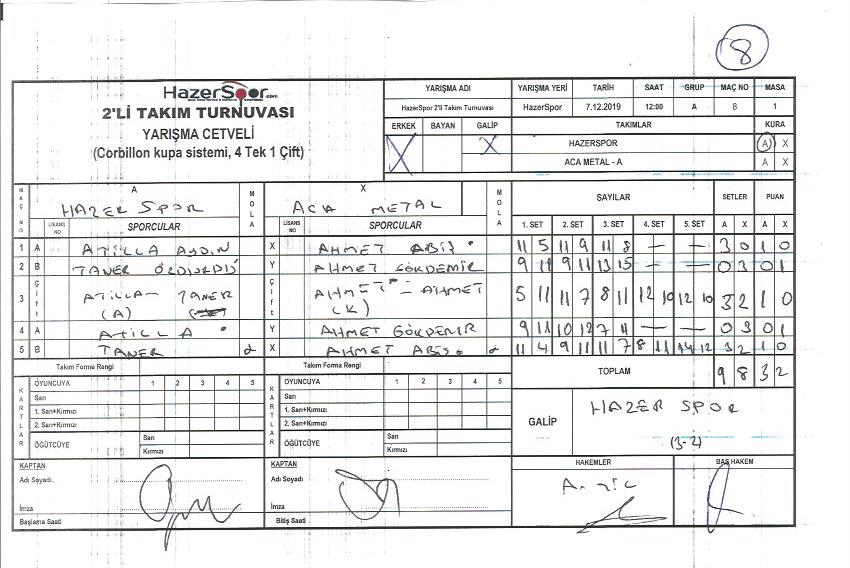 8
HazerSpor.com
2'Lİ TAKIM TURNUVASI
YARIŞMA CETVELİ
(Corbillon kupa sistemi, 4 Tek 1 Çift)
YARIŞMA ADI YARIŞMA YERİ TARİH SAAT GRUP MAÇ NO MASA
HazerSpor 2'li Takım Turnuvası HazerSpor 7.12.2019 12:00 A 8 1
ERKEK BAYAN GALİP TAKIMLAR KURA
X X HAZERSPOR A X
ACA METAL - A A X
MAÇ NO A MOLA X MOLA SAYILAR SETLER PUAN
HAZER SPOR ACA METAL
LİSANS NO SPORCULAR LİSANS NO SPORCULAR 1. SET 2. SET 3. SET 4. SET 5. SET A X A X
1 A ATİLLA AYDIN X AHMET ABİŞ 11 5 11 9 11 8 — — 3 0 1 0
2 B TANER Y AHMET GÖKDEMİR 9 11 9 11 13 15 — — 0 3 0 1
3 Çift ATİLLA - TANER (A) Çift AHMET - AHMET (K) 5 11 11 7 8 11 12 10 12 10 3 2 1 0
4 A ATİLLA Y AHMET GÖKDEMİR 9 11 10 12 7 11 — — 0 3 0 1
5 B TANER X AHMET ABİŞ 11 4 9 11 11 7 8 11 14 12 3 2 1 0
Takım Forma Rengi Takım Forma Rengi TOPLAM 9 8 3 2
KARTLAR OYUNCUYA 1 2 3 4 5 KARTLAR OYUNCUYA 1 2 3 4 5
Sarı Sarı
1. Sarı+Kırmızı 1. Sarı+Kırmızı
2. Sarı+Kırmızı 2. Sarı+Kırmızı
ÖĞÜTCÜYE Sarı ÖĞÜTCÜYE Sarı
Kırmızı Kırmızı
GALİP HAZER SPOR
(3-2)
KAPTAN KAPTAN HAKEMLER BAŞ HAKEM
Adı Soyadı Adı Soyadı
İmza İmza
Başlama Saati Bitiş Saati